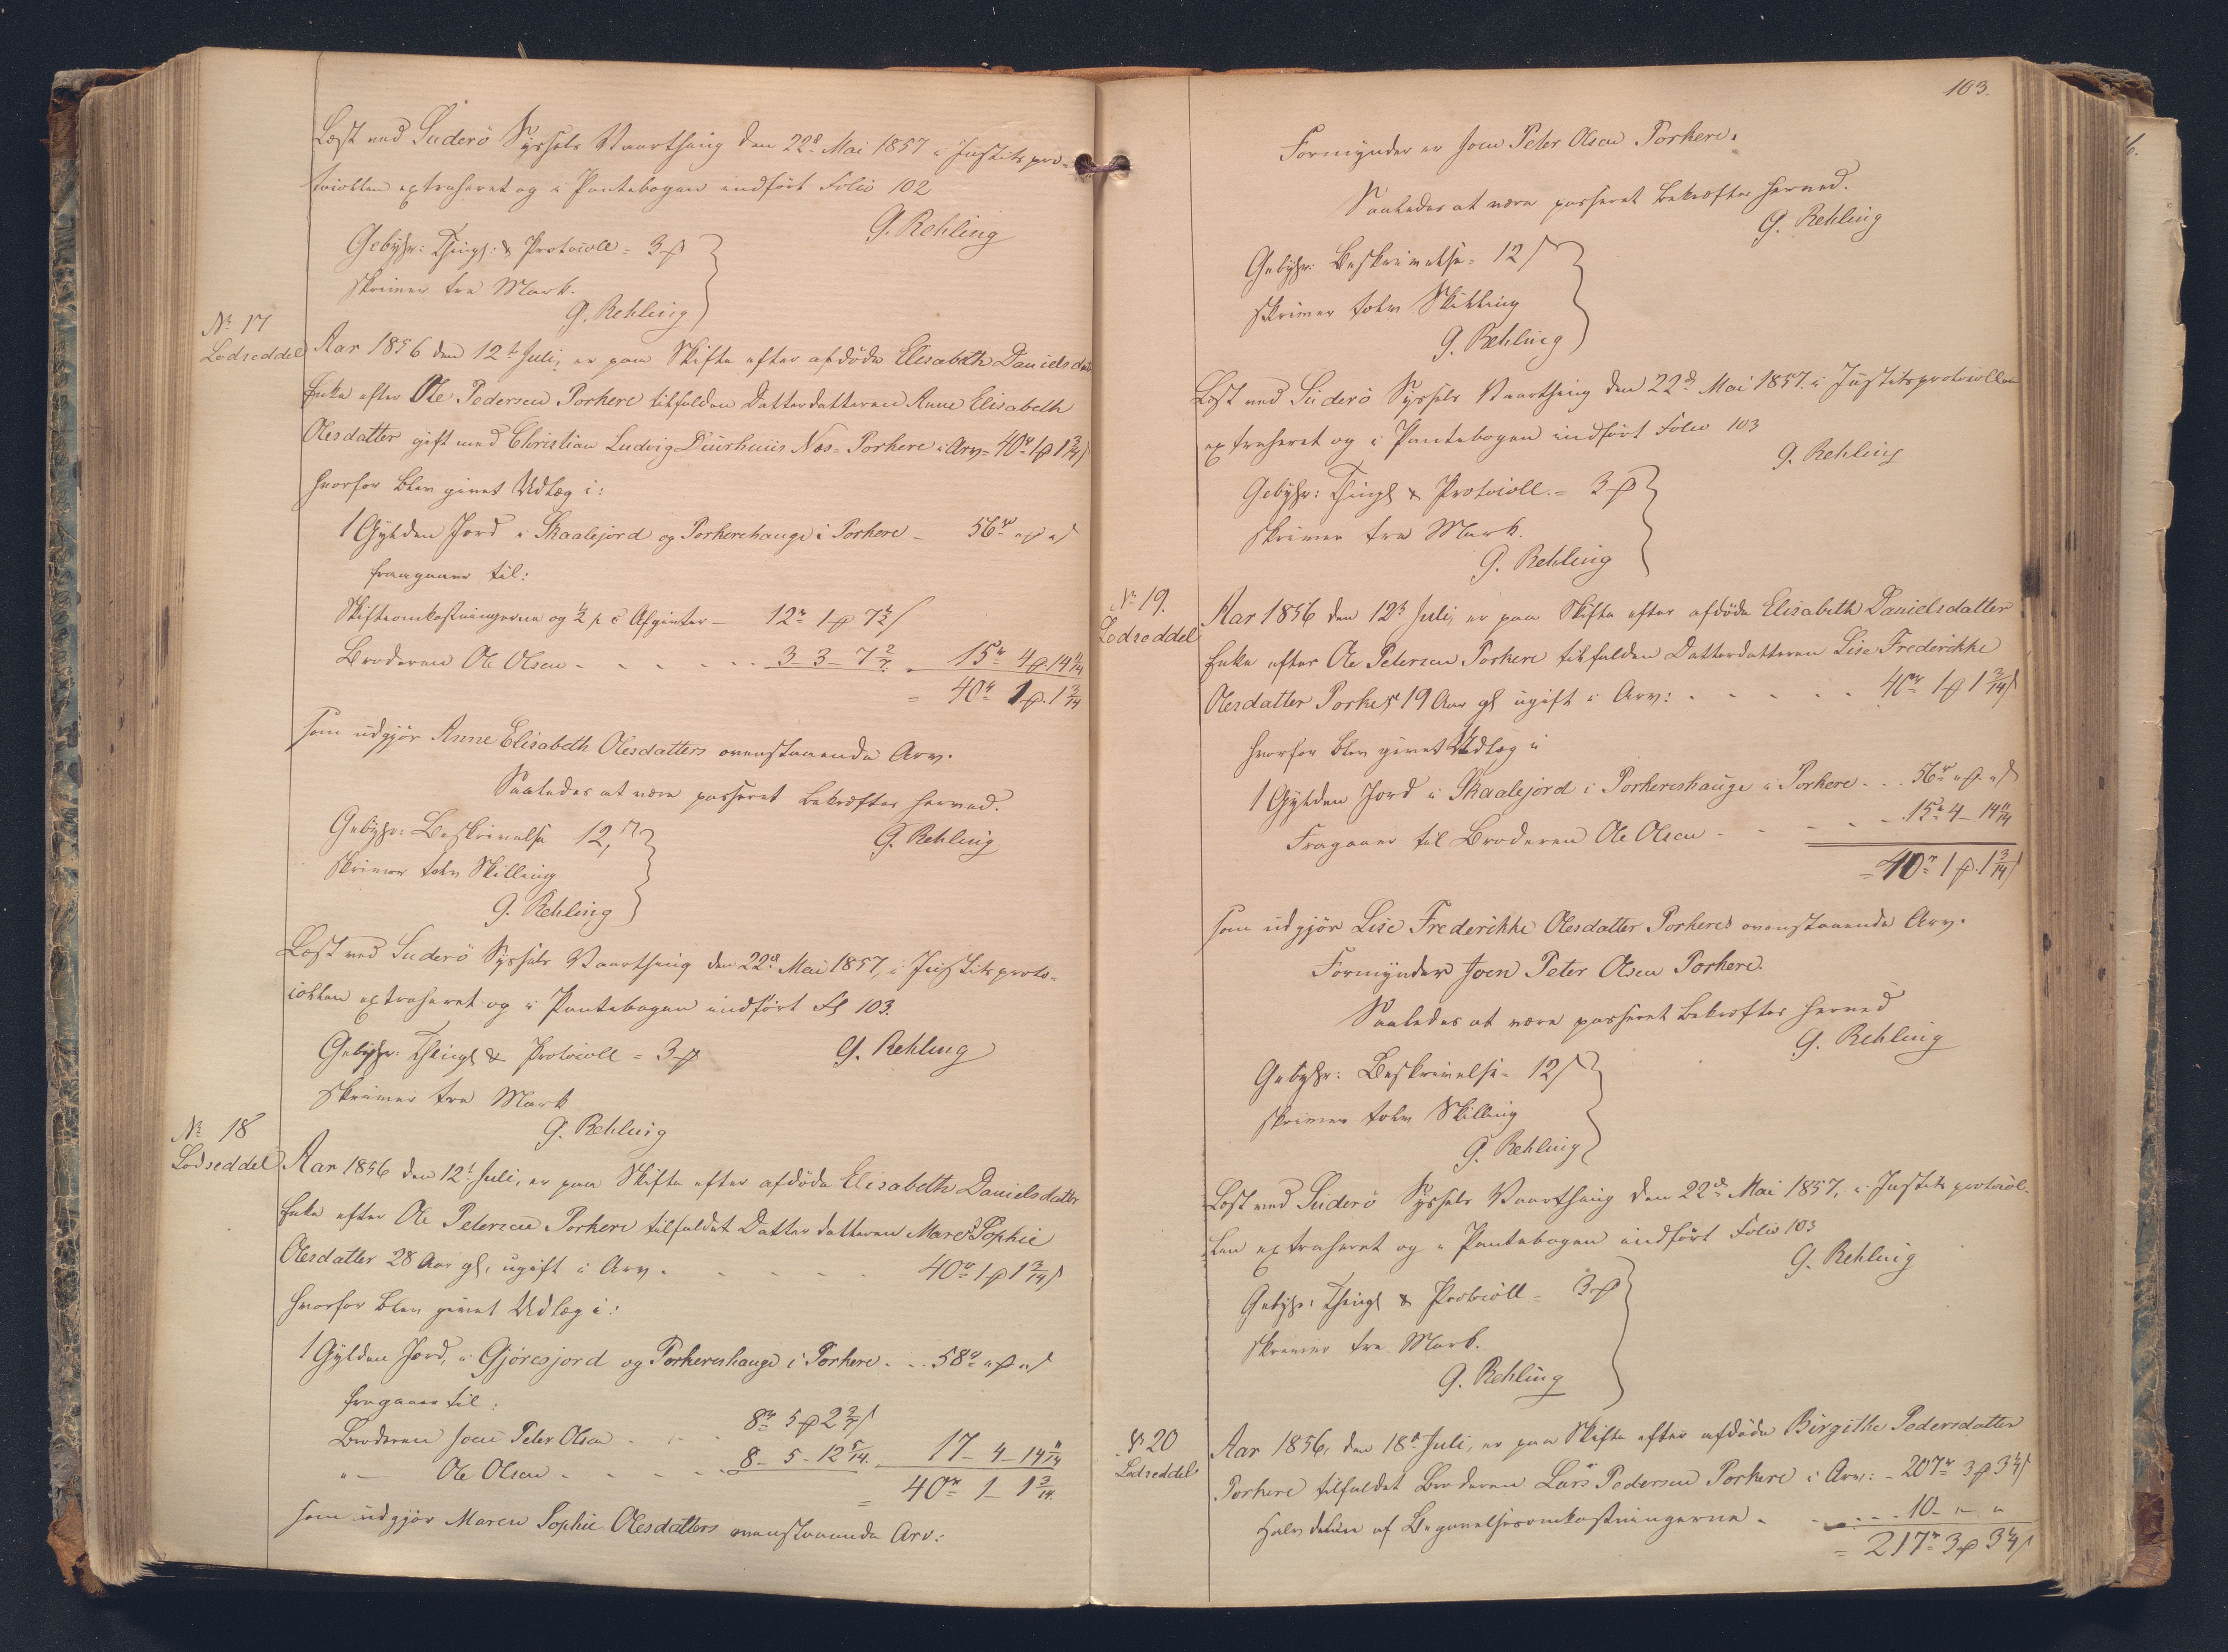 Læst ved Suderö Syssels Vaarthing den 22d Mai 1857 i Justitspro-
tocollen extraheret og i Pantebogen indført Folio 102
G. Rehling
Gebyhr: Thingl: & Protocoll = 3 ₻
skriver tre Mark.
G. Rehling
No 17
Lodseddel
Aar 1856 den 12t Juli, er paa Skifte efter afdøde Elisabeth Danielsdatter
Enke efter Ole Pedersen Porkere tilfalden Datterdatteren Anne Elisabeth
Olesdatter gift med Christian Ludvig Duurhuus Næs-Porkere i Arv = 40r 1 ₻ 1 3/14 s
hvorfor blev givet Udlæg i:
1 Gylden Jord i Skaalejord og Porkerehauge i Porkere - 56r " ₻ " s
fragaaer til:
Skifteomkostningerne og ½ p c Afgifter - 12r 1 ₻ 7 4/7 s
Broderen Ole Olsen - - - - - 3 - 3 - 7 2/7 - 15r 4 ₻ 14 11/14
= 40r 1 ₻ 1 3/14
som udgjør Anne Elisabeth Olesdatters ovenstaaende Arv.
Saaledes at være passeret bekræftes herved.
G. Rehling
Gebyhr: Beskrivelse 12 s
skriver tolv Skilling
G. Rehling
Læst ved Suderö Syssels Vaarthing den 22d Mai 1857, i Justitsproto-
collen extraheret og i Pantebogen indført Fl 103.
Gebyhr: Thingl & Protocoll = 3 ₻
G. Rehling
skriver tre Mark
G. Rehling
No 18
Lodseddel
Aar 1856 den 12t Juli, er paa Skifte efter afdøde Elisabeth Danielsdatter
Enke efter Ole Petersen Porkere tilfaldet Datterdatteren Maren Sophie
Olesdatter 28 Aar gl, ugift i Arv - - - - - 40r 1 ₻ 1 3/14 s
hvorfor blev givet Udlæg i:
1 Gylden Jord, i Gjøresjord og Porkereshauge i Porkere - - 58r " ₻ " s
fragaaer til:
Broderen Joen Peter Olsen - - - 8r 5 ₻ 2 2/7 s
" - Ole Olsen - - - - - 8 - 5 - 12 5/14 - 17 - 4 - 14 11/14
= 40r 1 - 1 3/14
som udgjør Maren Sophie Olesdatters ovenstaaende Arv:
103.
Formynder er Joen Peter Olsen Porkere.
Saaledes at være passeret bekræftes herved.
G. Rehling
Gebyhr: Beskrivelse = 12 s
skriver tolv Skilling
G. Rehling
Læst ved Suderö Syssels Vaarthing den 22d Mai 1857. i Justitsprotocollen
extraheret og i Pantebogen indført Folio 103
G. Rehling
Gebyhr: Thingl & Protocoll. = 3 ₻
skriver tre Mark.
G. Rehling
No 19.
Lodseddel
Aar 1856 den 12t Juli, er paa Skifte efter afdøde Elisabeth Danielsdatter
Enke efter Ole Petersen Porkere tilfalden Datterdatteren Lise Frederikke
Olesdatter Porkere 19 Aar gl ugift i Arv: - - - - - 40r 1 ₻ 1 3/14 s
hvorfor blev givet Udlæg i
1 Gylden Jord i Skaalejord i Porkereshauge i Porkere - - 56r " ₻ " s
Fragaaer til Broderen Ole Olsen - - - - - 15r 4 - 14 11/14
= 40r 1 ₻ 1 3/14 s
som udgjør Lise Frederikke Olesdatter Porkeres ovenstaaende Arv.
Formynder Joen Peter Olsen Porkere.
Saaledes at være passeret bekræftes herved
G. Rehling
Gebyhr: Beskrivelse - 12 s
skriver tolv Skilling
G. Rehling
Læst ved Suderö Syssels Vaarthing den 22d Mai 1857, i Justitsprotocol-
len extraheret og i Pantebogen indført Folio 103
G. Rehling
Gebyhr: Thingl & Protocoll = 3 ₻
skriver tre Mark.
G. Rehling
No 20
Lodseddel
Aar 1856, den 18d Juli, er paa Skifte efter afdøde Birgithe Pedersdatter
Porkere tilfaldet Broderen Lars Pedersen Porkere i Arv: - 207r 3 ₻ 3 4/7 s
Halvdelen af Begravelsesomkostningerne - - - - 10 - " - "
= 217r 3 ₻ 3 4/7 s